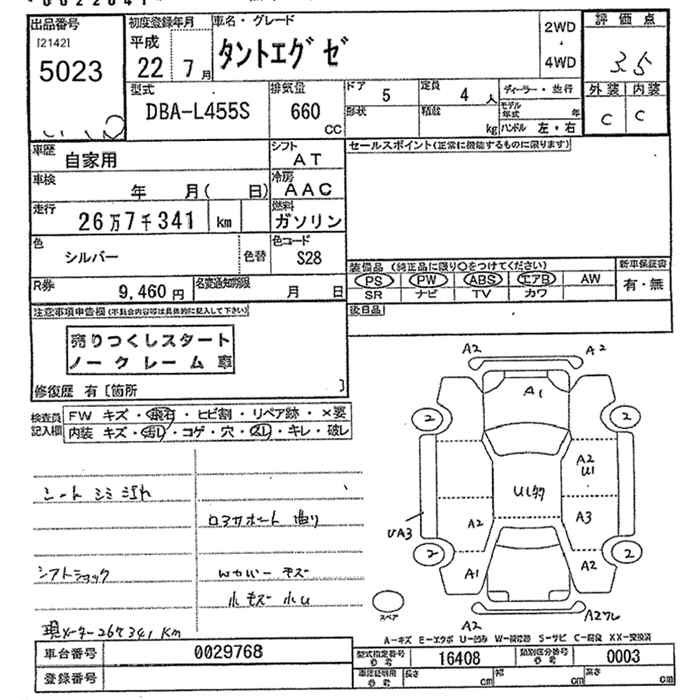 出品番号 初度登録年月 車名・グレード 2WD 評価点
[2142] 平成 タントエグゼ ・
5023 22 7月 4WD 3.5
型式 排気量 ドア 5 定員 4人 ディーラー・並行 外装 内装
DBA-L455S 660 CC 形状 積載 kg モデル年式 年 C C
ハンドル 左・右
車歴 自家用 シフト AT セールスポイント(正常に機能するものに限ります)
車検 年 月( 日) 冷房 AAC
走行 26万7千341 km 燃料 ガソリン
色 シルバー 色替 色コード S28 装備品(純正品に限り○をつけてください) 新車保証書
PS PW ABS エアB AW 有・無
R券 9,460円 名変通知期限 月 日 SR ナビ TV カワ
注意事項申告欄(不具合内容等は具体的に記入して下さい) 後日品
売りつくしスタート
ノークレーム車
修復歴 有〔箇所 〕
検査員記入欄 FW キズ・飛石・ヒビ割・リペア跡・×要
内装 キズ・汚レ・コゲ・穴・スレ・キレ・破レ
A2 A2
A1
2 2
A2
U1
U1 A2 A3
UA3
2 2
A1 A2
スペア
A2 A2
シート シミ 汚れ
ロアサポート 曲り
シフトショック Wカバー キズ
小キズ 小U
現メーター267341Km
A-キズ E-エクボ U-凹み W-補修跡 S-サビ C-腐食 XX-交換済
車台番号 0029768 型式指定番号 参考 16408 類別区分番号 参考 0003
登録番号 車証証明用 参考 長さ cm 幅 cm 高さ cm